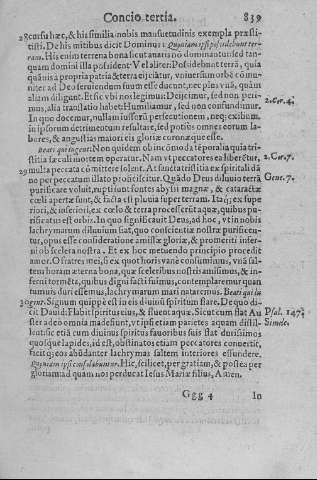 Concio tertia. 839
28 cursu hæc, & his similia nobis mansuetudinis exempla præsti-
tisti. De his mitibus dicit Dominus: Quoniam ipsi possidebunt ter-
ram. His enim terra bona sicut anatis nō dominantur sed tan-
quam domini illa possident. Vel aliter: Possidebunt terrā, quia
quāuis a propria patria & terra eijciātur, vniuersum orbē cōmu-
niter ad Deo seruiendum suum esse ducunt, nec plus vnā, quàm
aliam diligunt. Et sic vbi nos legimus: Deijcimur, sed non peri-
mus, alia translatio habet: Humiliamur, sed non confundimur. 2. Cor. 4.
In quo docemur, nullam iustorū persecutionem, neq; exibum,
in ipsorum detrimentum resultare, sed potius omnes eorum la-
bores, & angustias maioris eis gloriæ coronæque esse.
Beati qui lugent: Non quidem ob incōmoda tēporalia quia tri-
stitia sæculi mortem operatur. Nam vt peccatores ea liberētur, 2. Cor. 7.
29 multa peccata cōmittere solent. At sancta tristitia ex spiritali do-
no per peccatum illato proficiscitur. Quādo Deus diluuio terrā Gene. 7.
purificare voluit, rupti sunt fontes abyssi magnæ, & cataractæ
cœli apertæ sunt, & facta est pluuia super terram. Itaq; ex supe
riori, & inferiori, ex cœlo & terra processerūt aquæ, quibus pu-
rificatus est orbis. In quo significauit Deus, ad hoc, vt in nobis
lachrymarum diluuium fiat, quo conscientiæ nostræ purificen-
tur, opus esse consideratione amissæ gloriæ, & promeriti infer-
ni ob scelera nostra. Et ex hoc metuendo principio procedit
amor. O fratres mei, si ex quot horis vanè consumimus, vnā sal-
tem horam æterna bona, quæ sceleribus nostris amisimus, & in-
ferni tormēta, quibus digni facti fuimus, contemplaremur quam
tumuis duri essemus, lachrymarum mari nataremus. Beati qui lu
30 gent. Signum quippe est in eis diuinū spiritum stare. De quo di-
cit Dauid: Flabit spiritus eius, & fluent aquæ. Sicut cum flat Au Psal. 147.
ster adeo omnia madefiunt, vt ipsæ etiam parietes aquam distil- Simile.
lent: sic etiā cum diuinus spiritus suauibus suis flat durissimos
quosque lapides, id est, obstinatos etiam peccatores conuertit,
facitq; eos abūdanter lachrymas saltem interiores effundere.
Quoniam ipsi consolabuntur. Hic, scilicet, per gratiam, & postea per
gloriam ad quam nos perducat Iesus Mariæ filius, Amen.
Ggg 4 In